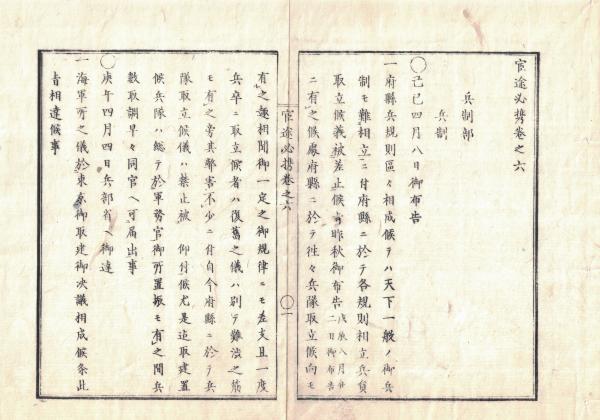 官途必携巻之六
兵制部
兵制
〇己巳四月八日御布告
一府縣兵規則區々相成候テハ天下一般ノ御兵
制モ難相立ニ付府縣ニ於テ各規則相立兵員
取立候義被差止候旨昨秋御布告戊辰八月廿二日御布告
ニ有之候處府縣ニ於テ往々兵隊取立候向モ
官途必携巻之六
〇一
有之運相聞御一定之御規律ニモ差支且一度
兵卒ニ取立候者ハ復舊之儀ハ別テ難澁之筋
モ有之旁其弊害不少ニ付自今府縣ニ於テ兵
隊取立候儀ハ禁止被 仰付候尤是迄取建置
候兵隊ハ總テ於軍務官御所置振モ有之間兵
數取調早々同官へ可届出事
〇庚午四月四日兵部省へ御達
一海軍所之儀於東京御取建御決議相成候条此
旨相達候事